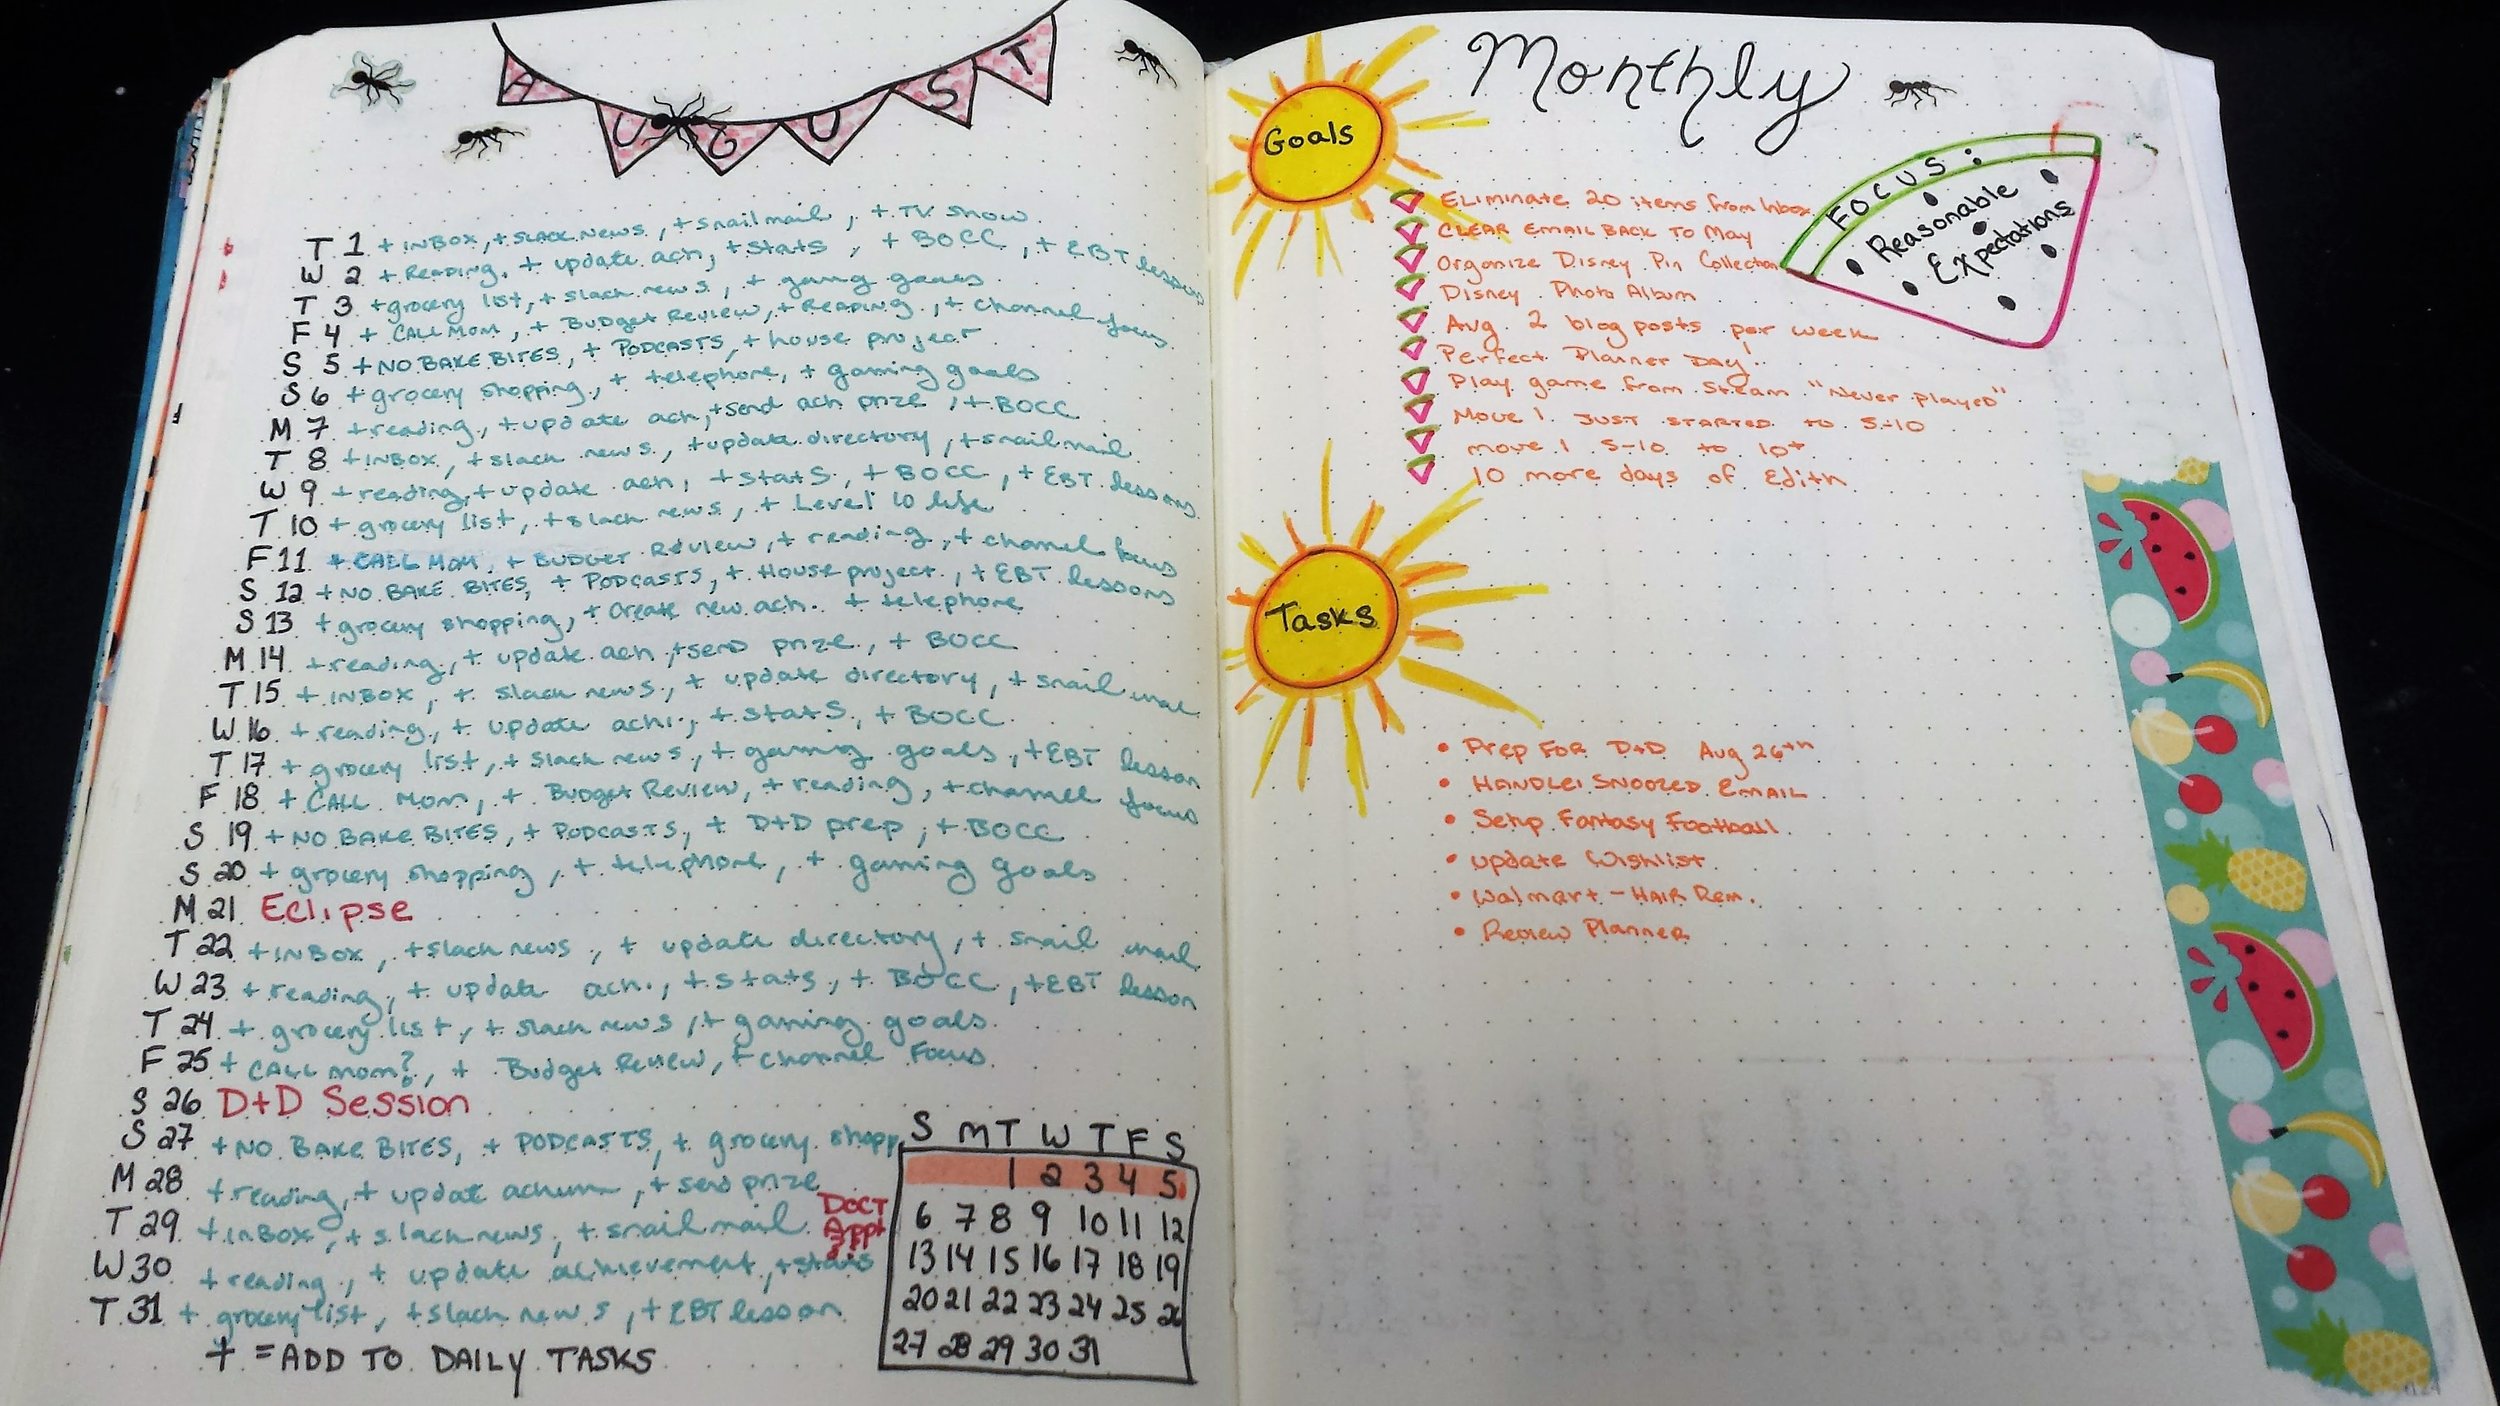 AUGUST
T 1 + INBOX, + SLACK NEWS, + snail mail, + TV show
W 2 + Reading, + update ach, + stats, + BOCC, + EBT lesson
T 3 + grocery list, + slack news, + gaming goals
F 4 + CALL MOM, + Budget Review, + Reading, + channel focus
S 5 + NO BAKE BITES, + PODCASTS, + house project
S 6 + grocery shopping, + telephone, + gaming goals
M 7 + reading, + update ach, + send ach prize, + BOCC
T 8 + INBOX, + slack news, + update directory, + snail mail
W 9 + reading, + update ach, + stats, + BOCC, + EBT lessons
T 10 + grocery list, + slack news, + Level 10 life
F 11 + CALL MOM, + BUDGET Review, + reading, + channel focus
S 12 + NO BAKE BITES, + PODCASTS, + House project, + EBT lessons
S 13 + grocery shopping, + Create new ach. + telephone
M 14 + reading, + update ach, + send prize, + BOCC
T 15 + INBOX, + slack news, + update directory, + snail mail
W 16 + reading, + update ach., + stats, + BOCC
T 17 + grocery list, + slack news, + gaming goals, + EBT lesson
F 18 + CALL Mom, + Budget Review, + reading, + channel focus
S 19 + NO BAKE BITES, + PODCASTS, + D+D prep, + BOCC
S 20 + grocery shopping, + telephone, + gaming goals
M 21 Eclipse
T 22 + INBOX, + slack news, + update directory, + snail mail
W 23 + reading, + update ach., + stats, + BOCC, + EBT lesson
T 24 + grocery list, + slack news, + gaming goals
F 25 + CALL mom?, + Budget Review, + channel Focus
S 26 D+D Session
S 27 + NO BAKE BITES, + PODCASTS, + grocery shopp
M 28 + reading, + update + send prize
T 29 + INBOX, + slack news, + snail mail DOCT Appt
W 30 + reading, + update achievement, + stats
T 31 + grocery list, + slack news, + EBT lesson
+ = ADD TO DAILY TASKS
S M T W T F S
1 2 3 4 5
6 7 8 9 10 11 12
13 14 15 16 17 18 19
20 21 22 23 24 25 26
27 28 29 30 31
Monthly
Goals
FOCUS:
Reasonable
Expectations
Eliminate 20 items from Inbox
CLEAR EMAIL BACK TO May
Organize Disney Pin Collection
Disney Photo Album
Avg 2 blog posts per week
Perfect Planner Day!
Play game from Steam "Never played"
Move 1 JUST STARTED to 5-10
move 1 5-10 to 10+
10 more days of Edith
Tasks
• Prep FOR D+D Aug 26th
• HANDLE SNOOZED EMAIL
• Setup Fantasy Football
• update Wishlist
• Walmart - HAIR Rem.
• Review Planner